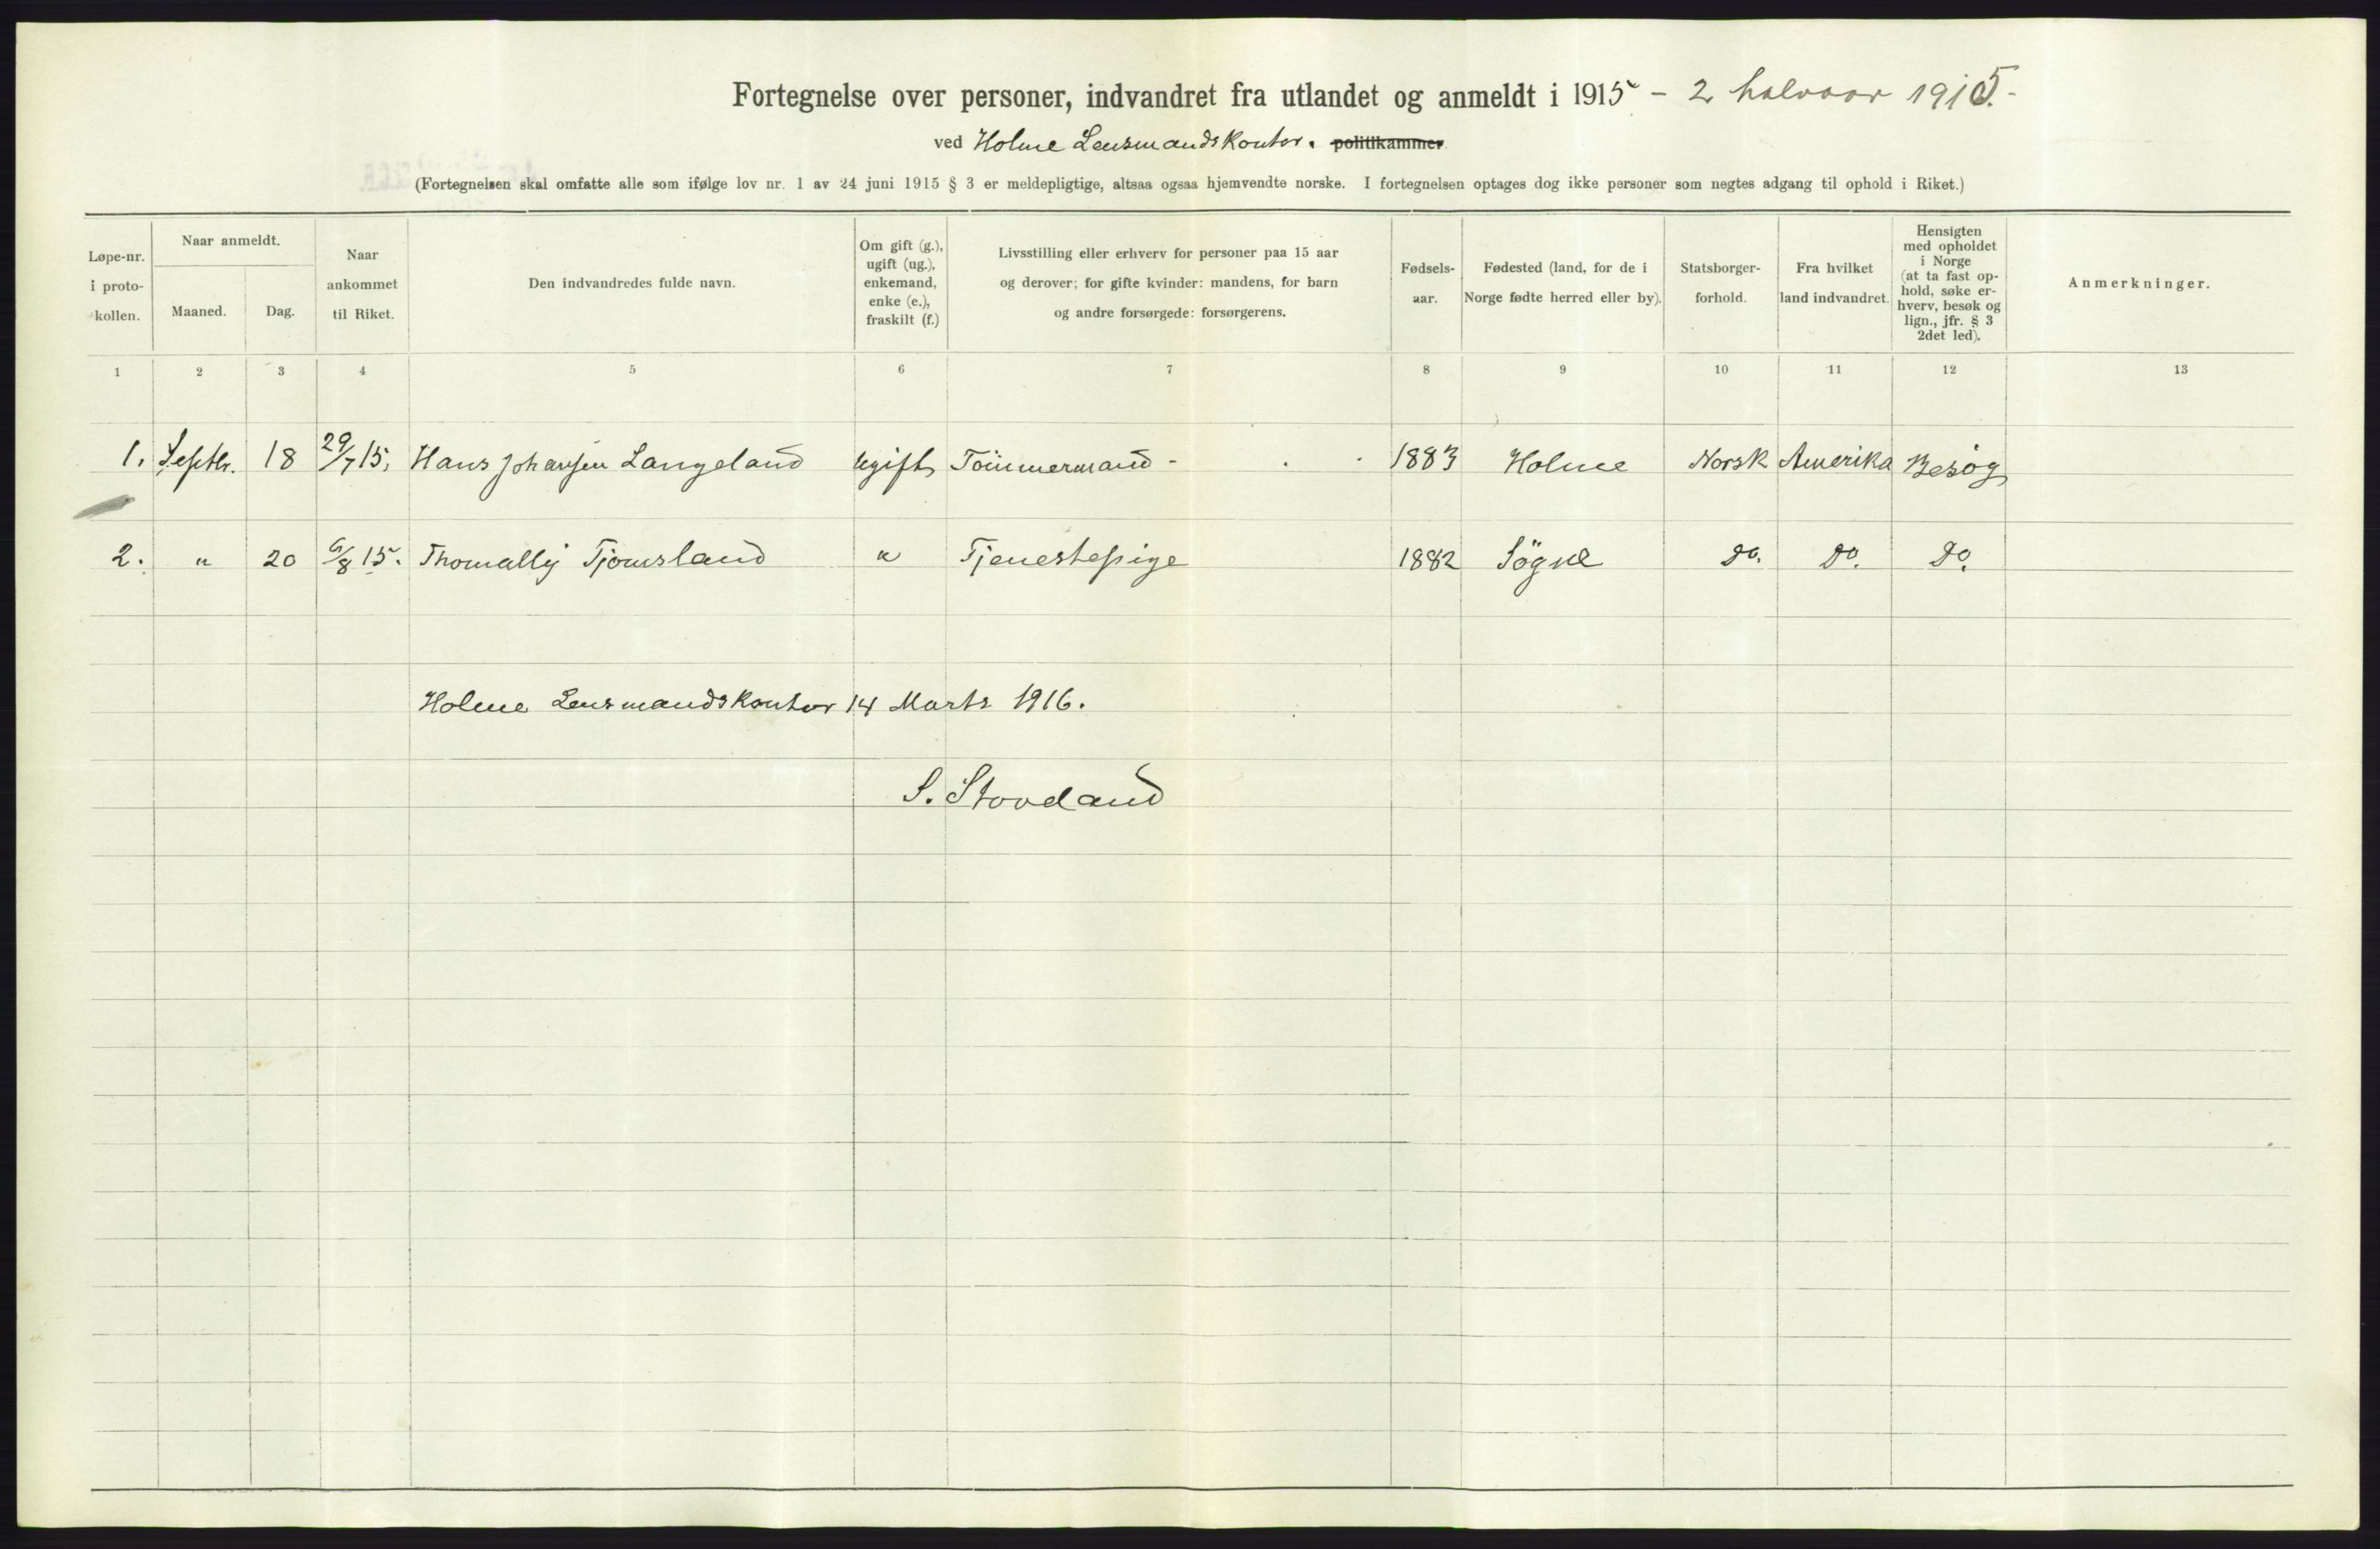 Fortegnelse over personer, indvandret fra utlandet og anmeldt i 1915 - 2 halvaar 1915.-
ved Holme Lensmandskontor. politikammer
(Fortegnelsen skal omfatte alle som ifølge lov nr. 1 av 24 juni 1915 § 3 er meldepligtige, altsaa ogsaa hjemvendte norske. I fortegnelsen optages dog ikke personer som negtes adgang til ophold i Riket.)
Løpe-nr.
i proto-
kollen.
Naar anmeldt.
Maaned.
Dag.
Naar
ankommet
til Riket.
Den indvandredes fulde navn.
Om gift (g.),
ugift (ug.),
enkemand,
enke (e.),
fraskilt (f.)
Livsstilling eller erhverv for personer paa 15 aar
og derover; for gifte kvinder: mandens, for barn
og andre forsørgede: forsørgerens.
Fødsels-
aar.
Fødested (land, for de i
Norge fødte herred eller by).
Statsborger-
forhold.
Fra hvilket
land indvandret.
Hensigten
med opholdet
i Norge
(at ta fast op-
hold, søke er-
hverv, besøk og
lign., jfr. § 3
2det led).
Anmerkninger.
1 2 3 4 5 6 7 8 9 10 11 12 13
1. Septbr. 18 29/7 15. Hans Johansen Langeland ugift Tömmermand - 1883 Holme Norsk Amerika Besøg
2. " 20 6/8 15. Tjomsland " Tjenestepige 1882 Sögne Do. Do. Do.
Holme Lensmandskontor 14 Marts 1916.
S. Stoveland